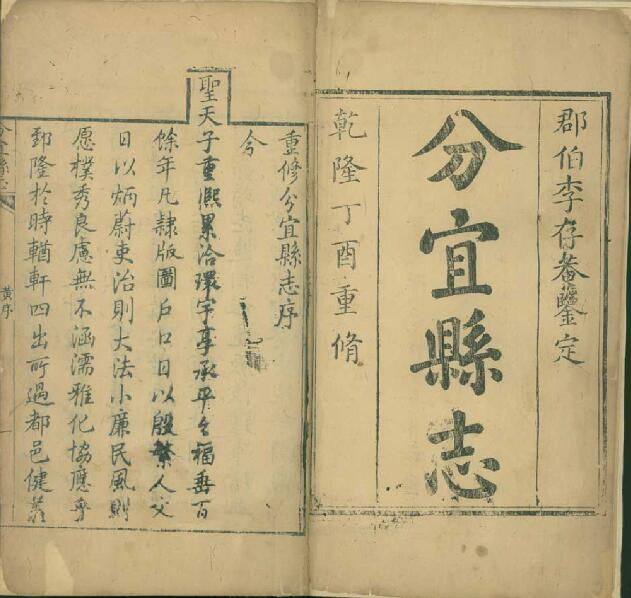 郡伯李存菴鑒定
分宜縣志
乾隆丁酉重脩
重修分宜縣志序
今
聖天子重熈累洽環宇享承平之福垂百
餘年凡隷版圖戶口日以殷繁人文
日以炳蔚吏治則大法小廉民風則
愿樸秀良慮無不涵濡雅化協應乎
郅隆於時輶軒四出所過都邑健羨
分宜縣志
黄序
一